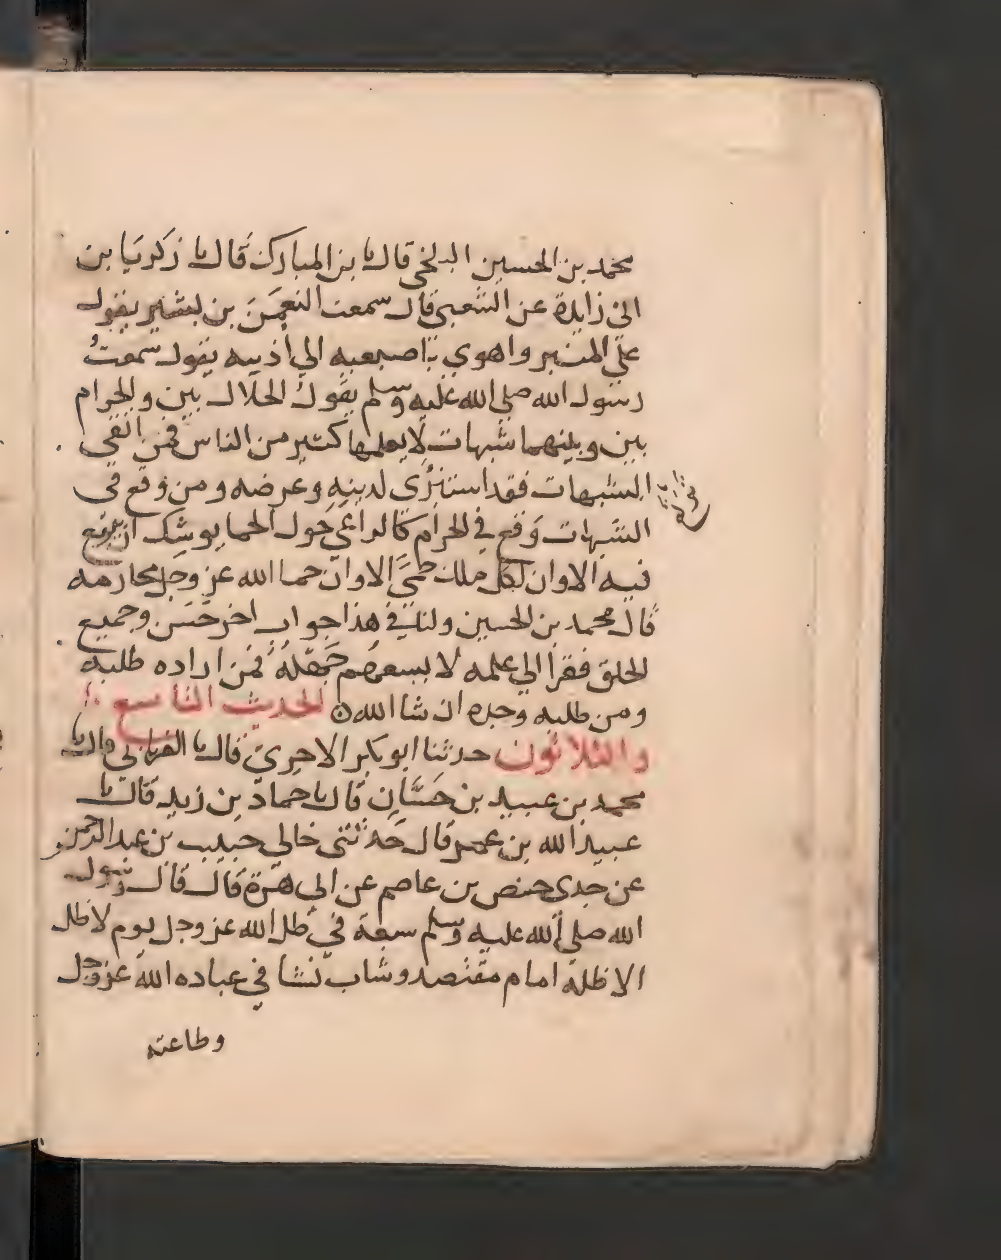 محمد بن الحسين البلخي قال نا بن المبارك قال نا زكريا بن
ابي زايدة عن الشعبي قال سمعت النعمن بن بشير يقول
على المنبر واهوى باصبعيه الي اذنيه يقول سمعتُ
رسول الله صلى الله عليه وسلم يقول الحلال بين والحرام
بين وبينهما شبهات لا يعلمها كثير من الناس فمن اتقى
الشبهات فقد استبرى لدينه وعرضه ومن وقع في
الشبهات وقع في الحرام كالراعي حول الحما يوشك ان يرتع
فيه الا وان لكل ملك حمى الا وان حما الله عز وجل محارمه
قال محمد بن الحسين ولنا في هذا جواب اخر حسن وجميع
الخلق فقرا الي علمه لا يسعهم جهله فمن اراده طلبه
ومن طلبه وجده ان شا الله الحديث التاسع
والثلاثون حدثنا ابو بكر الاجري قال نا الفريابي قال نا
محمد بن عبيد بن حسان قال نا حماد بن زيد قال نا
عبيد الله بن عمر قال حدثني خالي حبيب بن عبد الرحمن
عن جدي حفص بن عاصم عن ابي هرة قال قال رسول
الله صلى الله عليه وسلم سبعة في ظل الله عز وجل يوم لا ظل
الا ظله امام مقتصد وشاب نشا في عباده الله عز وجل
وطاعته